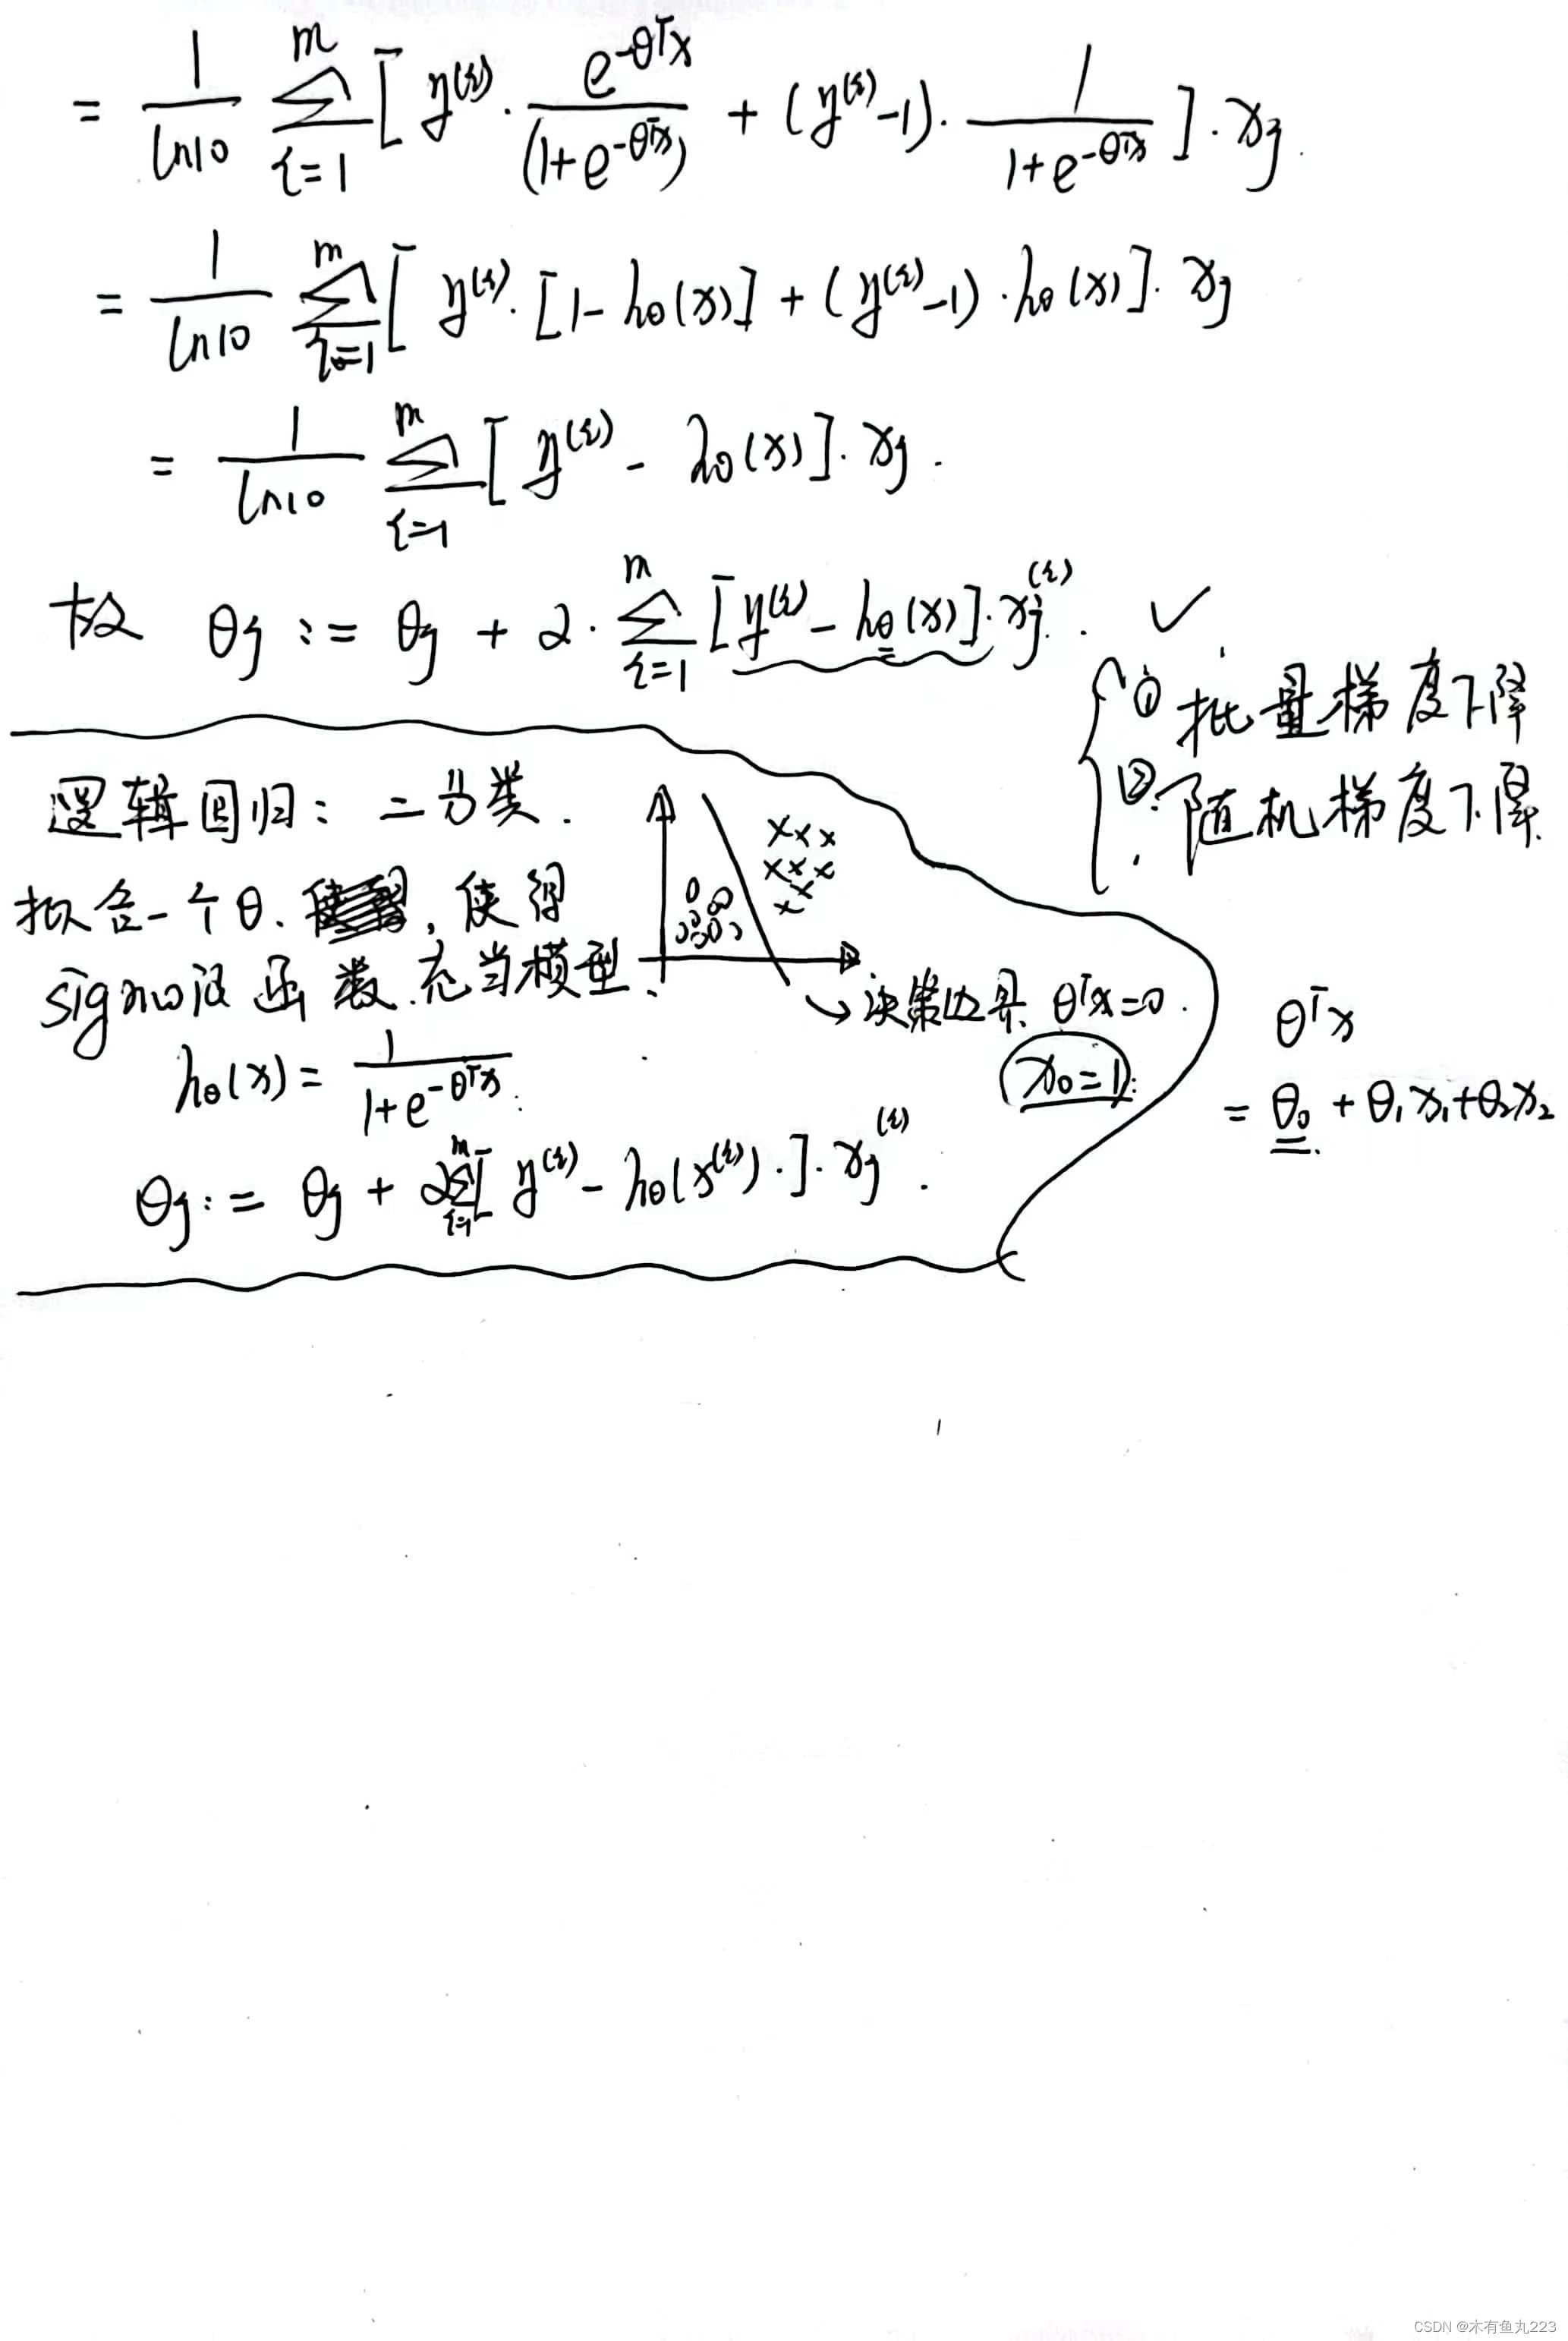 = 1/ln10 ∑_{i=1}^{m} [ y^{(i)} · e^{-θᵀx}/(1+e^{-θᵀx}) + (y^{(i)}-1) · 1/(1+e^{-θᵀx}) ] · x_j.
= 1/ln10 ∑_{i=1}^{m} [ y^{(i)} · [1-h_θ(x)] + (y^{(i)}-1) · h_θ(x) ] · x_j
= 1/ln10 ∑_{i=1}^{m} [ y^{(i)} - h_θ(x) ] · x_j.
故 θ_j := θ_j + α · ∑_{i=1}^{m} [ y^{(i)} - h_θ(x) ] · x_j^{(i)}. ✓
① 批量梯度下降
② 随机梯度下降.
逻辑回归: 二分类.
拟合一个θ, 使得
sigmoid 函数充当模型.
决策边界 θᵀx=0.
x₀=1.
h_θ(x) = 1/(1+e^{-θᵀx}).
θ_j := θ_j + α∑_{i=1}^{m} [ y^{(i)} - h_θ(x^{(i)}) · ] · x_j^{(i)}.
θᵀx
= θ₀ + θ₁x₁+θ₂x₂
CSDN @木有鱼丸223